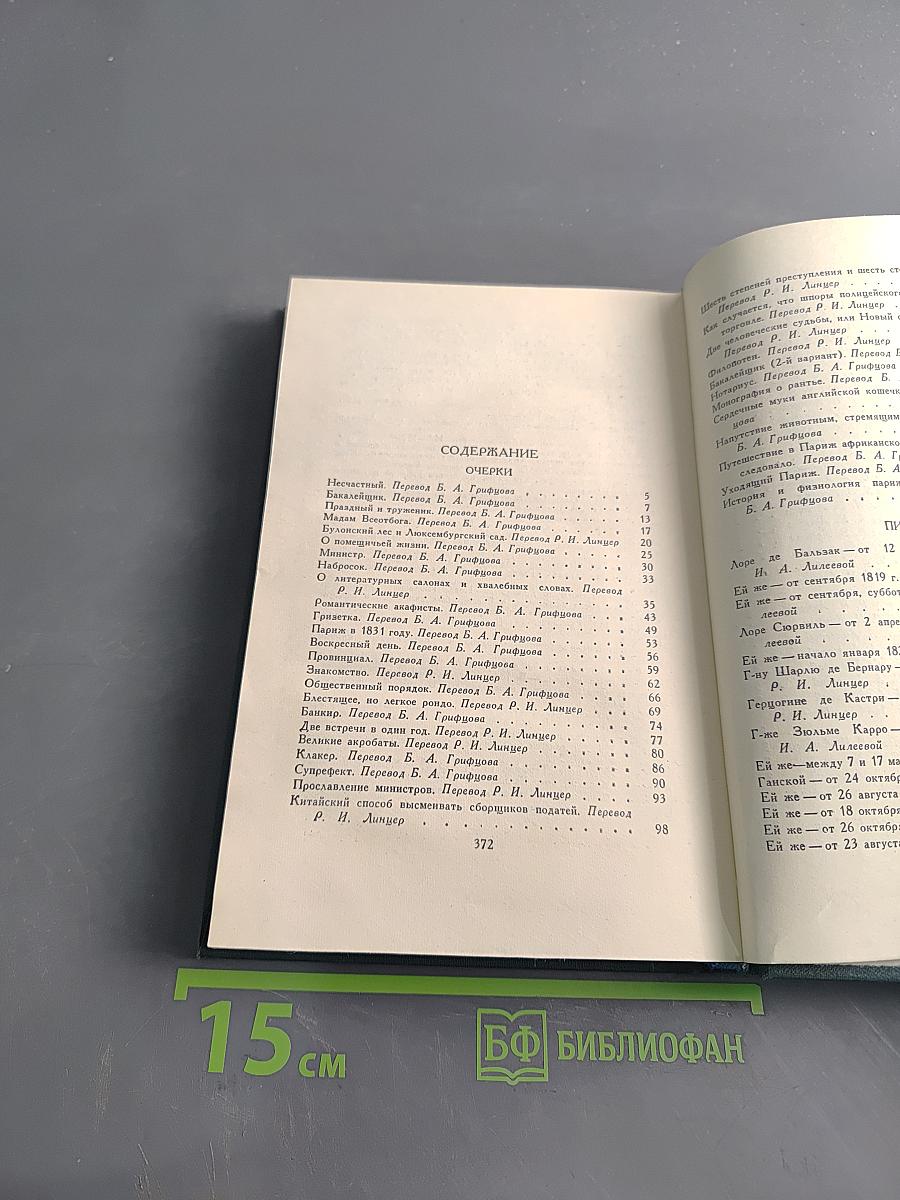 СОДЕРЖАНИЕ
ОЧЕРКИ
Несчастный. Перевод Б. А. Грифцова . . . . . . . 5
Бакалейщик. Перевод Б. А. Грифцова . . . . . . . 7
Праздный и труженик. Перевод Б. А. Грифцова . . . . . 13
Мадам Всеотбога. Перевод Б. А. Грифцова . . . . . 17
Булонский лес и Люксембургский сад. Перевод Р. И. Линцер 20
О помещичьей жизни. Перевод Б. А. Грифцова . . . . . 25
Министр. Перевод Б. А. Грифцова . . . . . . . 30
Набросок. Перевод Б. А. Грифцова . . . . . . . 33
О литературных салонах и хвалебных словах. Перевод
Р. И. Линцер . . . . . . . . . . . 35
Романтические акафисты. Перевод Б. А. Грифцова . . . . 43
Гризетка. Перевод Б. А. Грифцова . . . . . . . 49
Париж в 1831 году. Перевод Б. А. Грифцова . . . . . 53
Воскресный день. Перевод Б. А. Грифцова . . . . . 56
Провинциал. Перевод Б. А. Грифцова . . . . . . 59
Знакомство. Перевод Р. И. Линцер . . . . . . . 62
Общественный порядок. Перевод Б. А. Грифцова . . . . 66
Блестящее, но легкое рондо. Перевод Р. И. Линцер . . . 69
Банкир. Перевод Б. А. Грифцова . . . . . . . 74
Две встречи в один год. Перевод Р. И. Линцер . . . . 77
Великие акробаты. Перевод Р. И. Линцер . . . . . 80
Клакер. Перевод Б. А. Грифцова . . . . . . . 86
Супрефект. Перевод Б. А. Грифцова . . . . . . . 90
Прославление министров. Перевод Р. И. Линцер . . . . 93
Китайский способ высмеивать сборщиков податей. Перевод
Р. И. Линцер . . . . . . . . . . . 98
372
Шесть степеней преступления и шесть
Перевод Р. И. Линцер . . . .
Как случается, что шпоры полицейского
торговле. Перевод Р. И. Линцер .
Две человеческие судьбы, или Новый
Перевод Р. И. Линцер . . . .
Филопотен. Перевод Р. И. Линцер
Бакалейщик (2-й вариант). Перевод
Нотариус. Перевод Б. А. Грифцова
Монография о рантье. Перевод Б.
Сердечные муки английской кошечки
цова . . . . . . .
Напутствие животным, стремящим
Б. А. Грифцова . . . .
Путешествие в Париж африканско
следовало. Перевод Б. А.
Уходящий Париж. Перевод Б. А.
История и физиология
Б. А. Грифцова . . . .
Лоре де Бальзак — от 12
И. А. Лилеевой . .
Ей же — от сентября 1819 г.
Ей же — от сентября,
леевой . . . .
Лоре Сюрвиль — от 2
леевой . . . .
Ей же — начало января
Г-ну Шарлю де Бернару —
Р. И. Линцер .
Герцогине де Кастри —
Р. И. Линцер . .
Г-же Зюльме Карро —
И. А. Лилеевой
Ей же — между 7 и 17
Ганской — от 24
Ей же — от 26 августа
Ей же — от 18
Ей же — от 26
Ей же — от 23
15 см
БФ БИБЛИОФАН